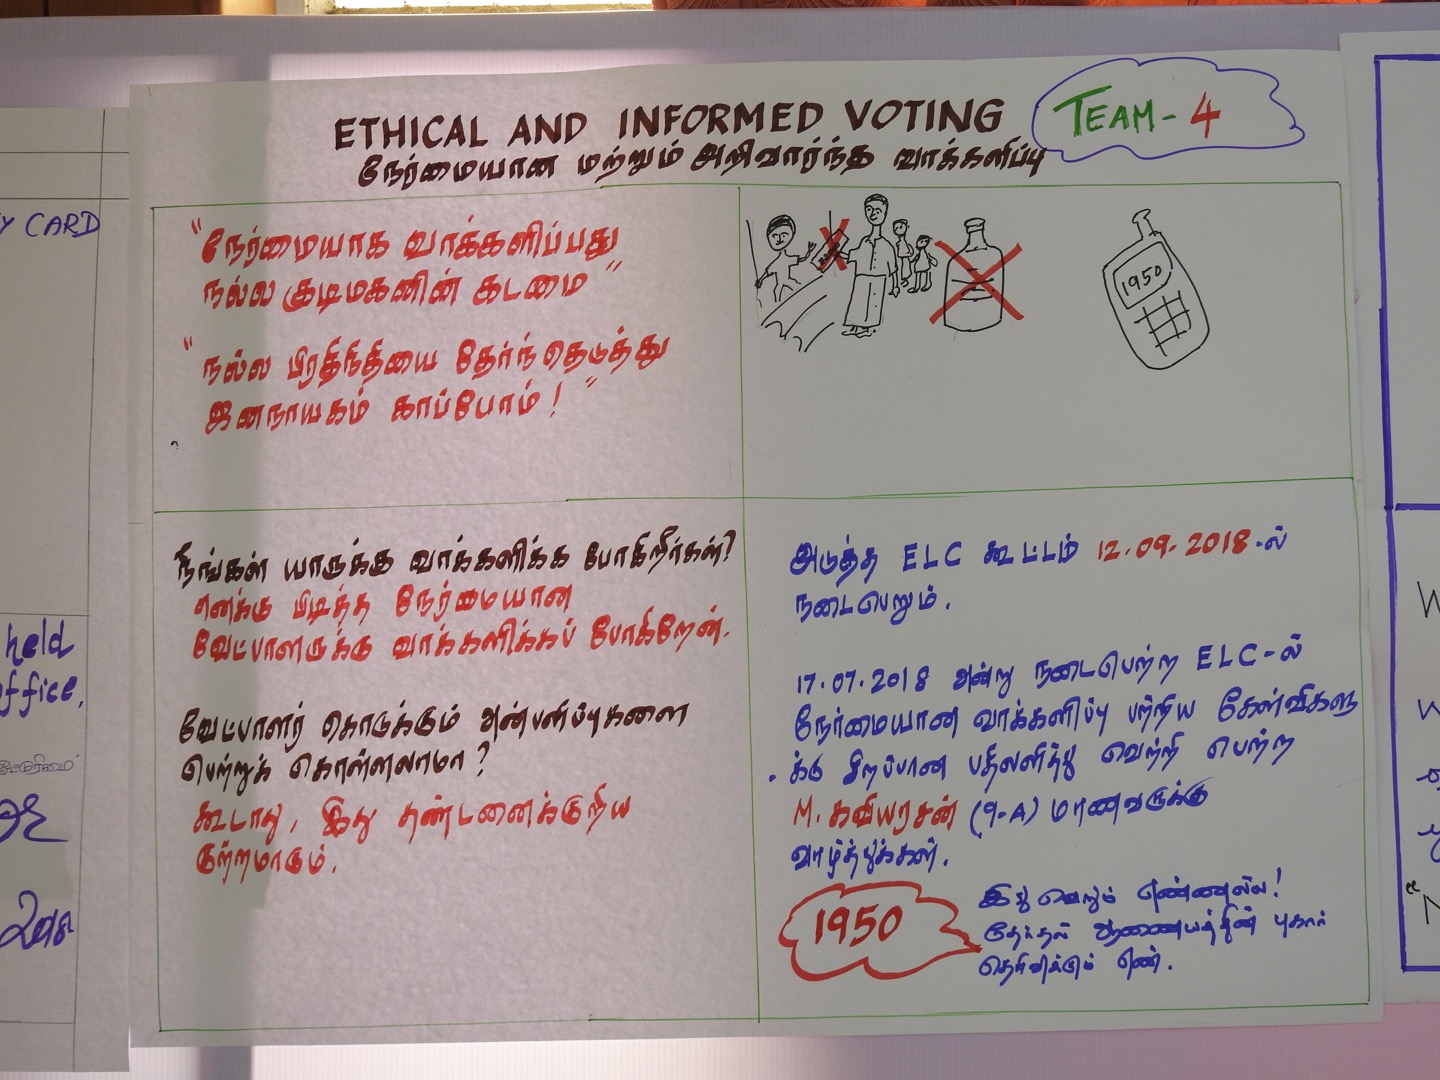 ETHICAL AND INFORMED VOTING
TEAM - 4
நேர்மையான மற்றும் அறிவார்ந்த வாக்களிப்பு
"நேர்மையாக வாக்களிப்பது
நல்ல குடிமகனின் கடமை"
"நல்ல பிரதிநிதியை தேர்ந்தெடுத்து
ஜனநாயகம் காப்போம்!"
1950
நீங்கள் யாருக்கு வாக்களிக்க போகிறீர்கள்?
எனக்கு பிடித்த நேர்மையான
வேட்பாளருக்கு வாக்களிக்கப் போகிறேன்.
வேட்பாளர் கொடுக்கும் அன்பளிப்புகளை
பெற்றுக் கொள்ளலாமா?
கூடாது, இது தண்டனைக்குறிய
குற்றமாகும்.
அடுத்த ELC கூட்டம் 12.09.2018-ல்
நடைபெறும்.
17.07.2018 அன்று நடைபெற்ற ELC-ல்
நேர்மையான வாக்களிப்பு பற்றிய கேள்விகளு
க்கு சிறப்பான பதிலளித்து வெற்றி பெற்ற
M. கவியரசன் (9-A) மாணவருக்கு
வாழ்த்துக்கள்.
1950
இது வெறும் எண்ணல்ல!
தேர்தல் ஆணையத்தின் புகார்
தெரிவிக்கும் எண்.
Y CARD
held
office,
2018